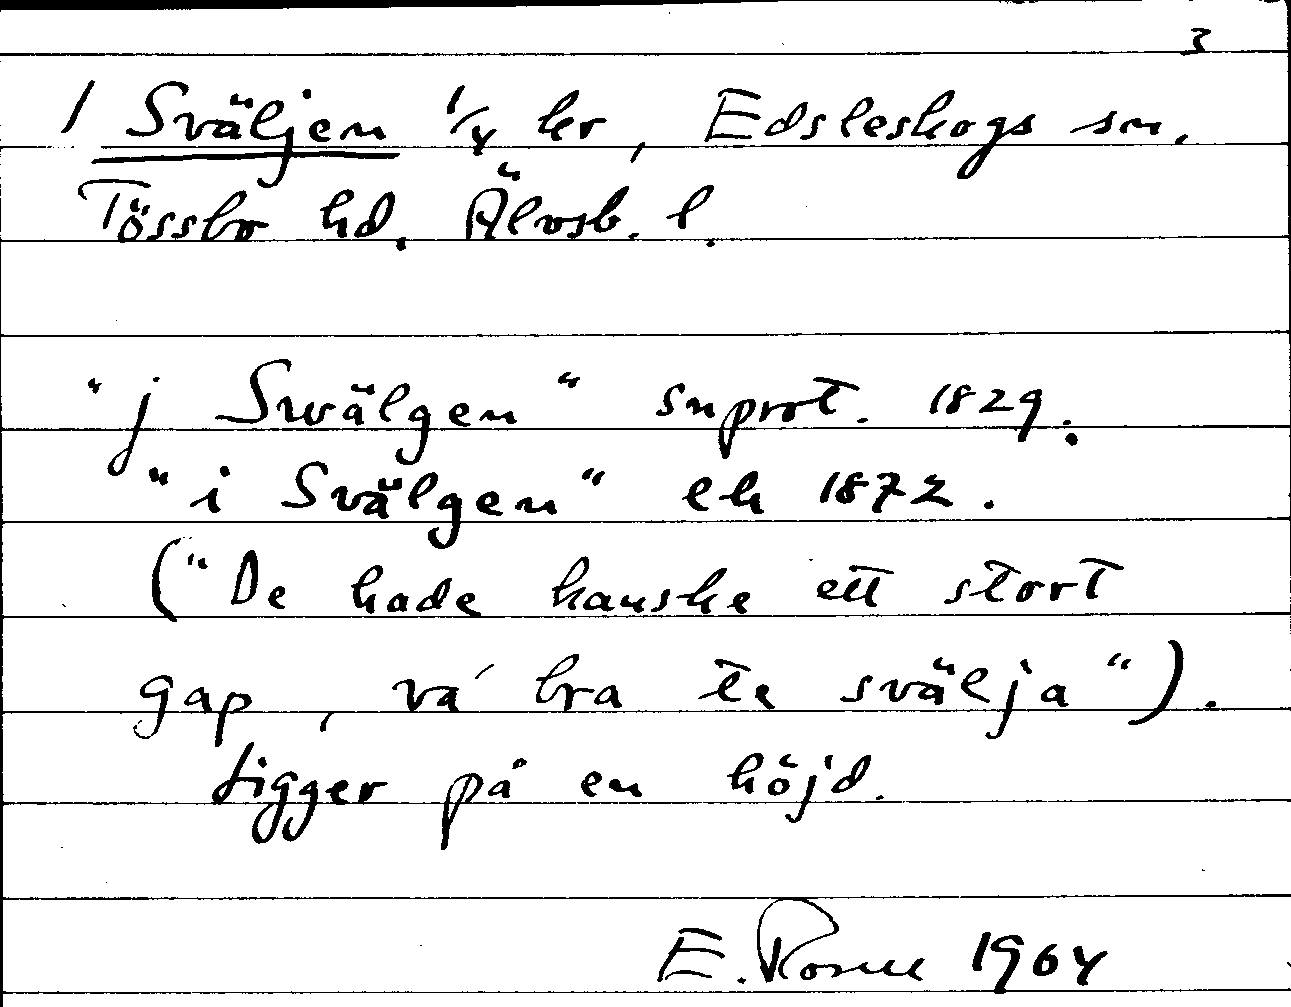 3
/ Sväljen 1/4 kr, Edsleskogs sn.
Tössbo hd. Älvsb. l.
"j Swälgen" snprot. 1829.
"i Svälgen" ek 1872.
("De hade kanske ett stort
gap, va' bra te svälja").
Ligger på en höjd.
E. 1964